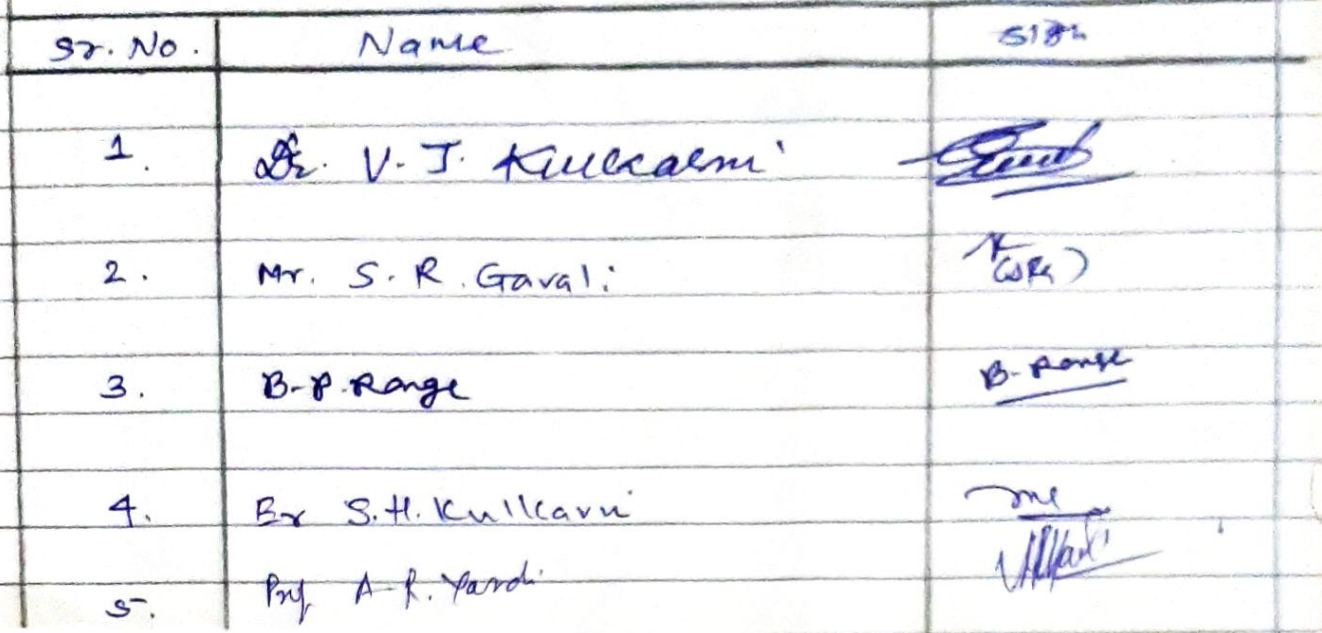 Sr. No. Name Sign
1. Dr. V. J. Kulkarni
2. Mr. S. R. Gavali
3. B. P. Range B. Range
4. Er S. H. Kulkarni
5. Prof A. R. Yardi